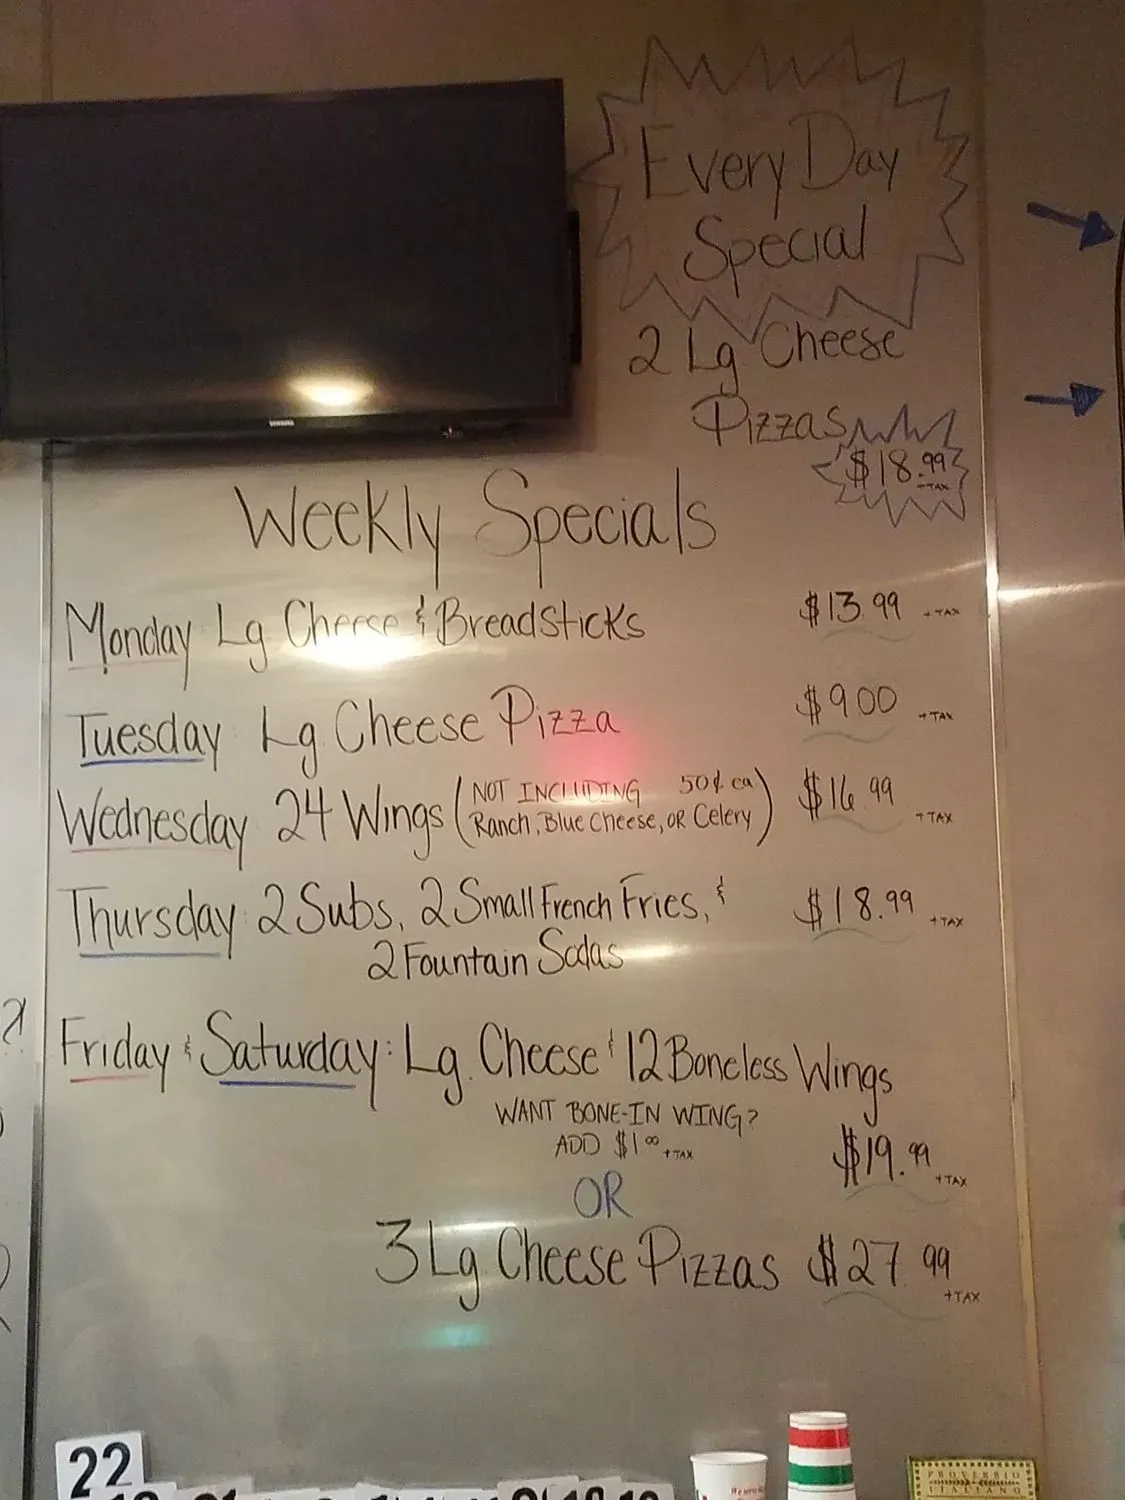 SAMSUNG
Every Day
Special
2 Lg Cheese
Pizzas
$18.99
+TAX
Weekly Specials
Monday Lg Cheese & Breadsticks $13.99 +TAX
Tuesday Lg. Cheese Pizza $9.00 +TAX
Wednesday 24 Wings (NOT INCLUDING 50¢ ea $16.99 +TAX
Ranch, Blue Cheese, OR Celery)
Thursday: 2 Subs, 2 Small French Fries, & $18.99 +TAX
2 Fountain Sodas
Friday & Saturday: Lg. Cheese & 12 Boneless Wings
WANT BONE-IN WING?
ADD $1.00 +TAX
$19.99 +TAX
OR
3 Lg Cheese Pizzas $27.99 +TAX
22
PROVERBIO
ITALIANO